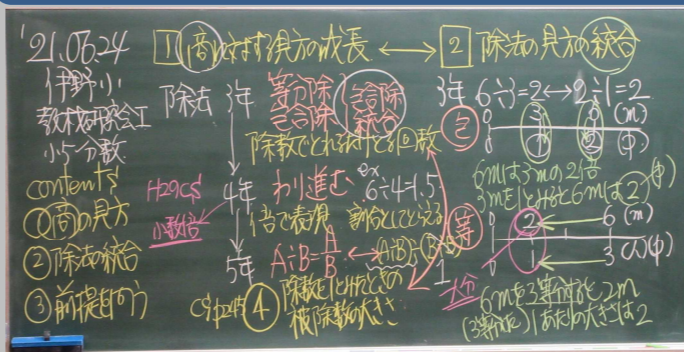 '21.06.24
伊野小
教材研究会I
小5分数
contents
①商の見方
②除法の統合
③前提を问う
1 商に対する見方の成長 ⟷ 2 除法の見方の統合
除法 3年 等分除
包含除
包含除
統合
除数でとれるだけとる回数
H29CS
小数倍
4年 わり進む ex 6÷4=1.5
倍で表現 割合としてとらえる
5年 A÷B=A/B
CS p245
④ 除数を1とみたときの
被除数の大きさ
3年 6÷3=2⟷2÷1=2
包
0 3 6 (m)
0 1 2 (P)
6mは3mの2倍
3mを1とみると6mは2
等
0 2 6 (m)
0 1 3 (人)(P)
大分
6mを3等分すると2m
(3等分した)1あたりの大きさは2